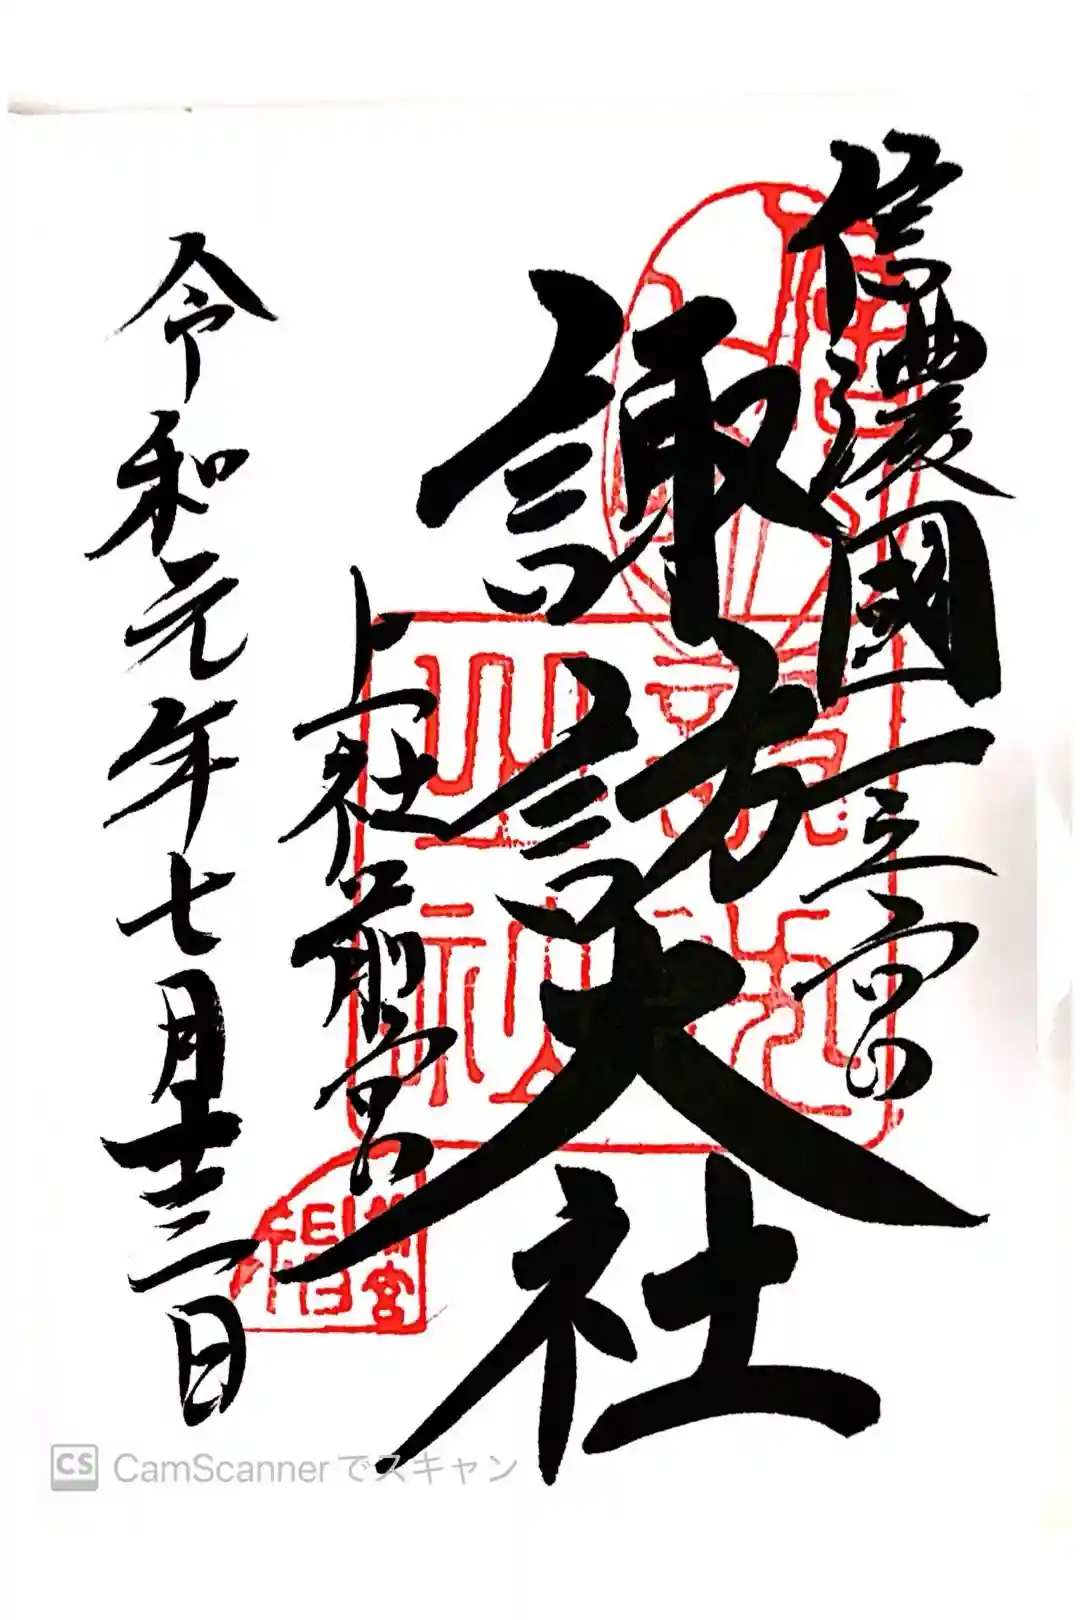 信濃國一宮
諏訪大社
上社前宮
令和元年七月十三日
CS CamScannerでスキャン